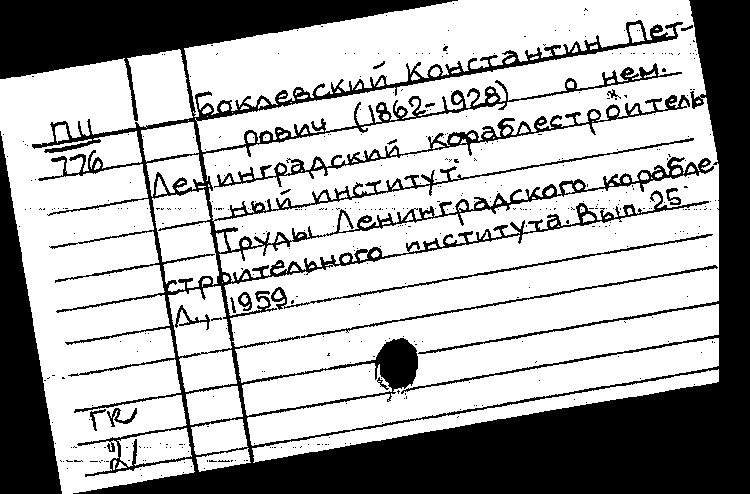 Боклевский, Константин Пет-
рович (1862-1928) о нем.
ПШ
776
Ленинградский кораблестроитель-
ный институт.
Труды Ленинградского корабле-
строительного института. Вып. 25
Л., 1959.
ГК
21